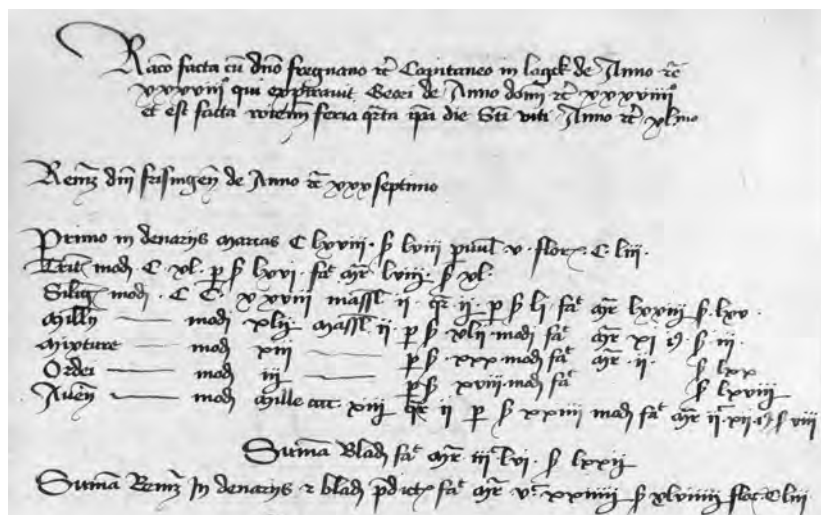 Raco facta cu dno fregnano etc Capitaneo in lagck de Anno etc
xxxviii qui exptravit Geori de Anno domi etc xxxviiii°
et est facta feria qrta ipa die Sti viti Anno etc xl mo
Reman dni frisingen de Anno etc xxx septimo
Primo in denarijs marcas C lxviii · ß lviii · v · flor · C · liii ·
Trit modi · C · xl · p ß lxvi · fac mre lviii · ß xl ·
Silig modi · C C · xxviii massl ii · qr ii · p ß li fac mre lxxiii ß · lxv ·
Milly modi xlii massl ii · p ß · xlii · modi fac mre xi ß · iii ·
Mixture modi xiii p ß · xxx · modi fac mre · ii · ß lxx
Ordei modi iii p ß · xviii · modi fac ß lxviii
Aven modi Mille ccc · xiii qr ii p ß xxiiii modi fac mre ii c xii ß viii
Suma Bladi fac mre iii c lvi · ß lxxii
Suma Reman In denarijs et bladi pdictis fac mre v c xxiiii ß xlviiii flor · C liii